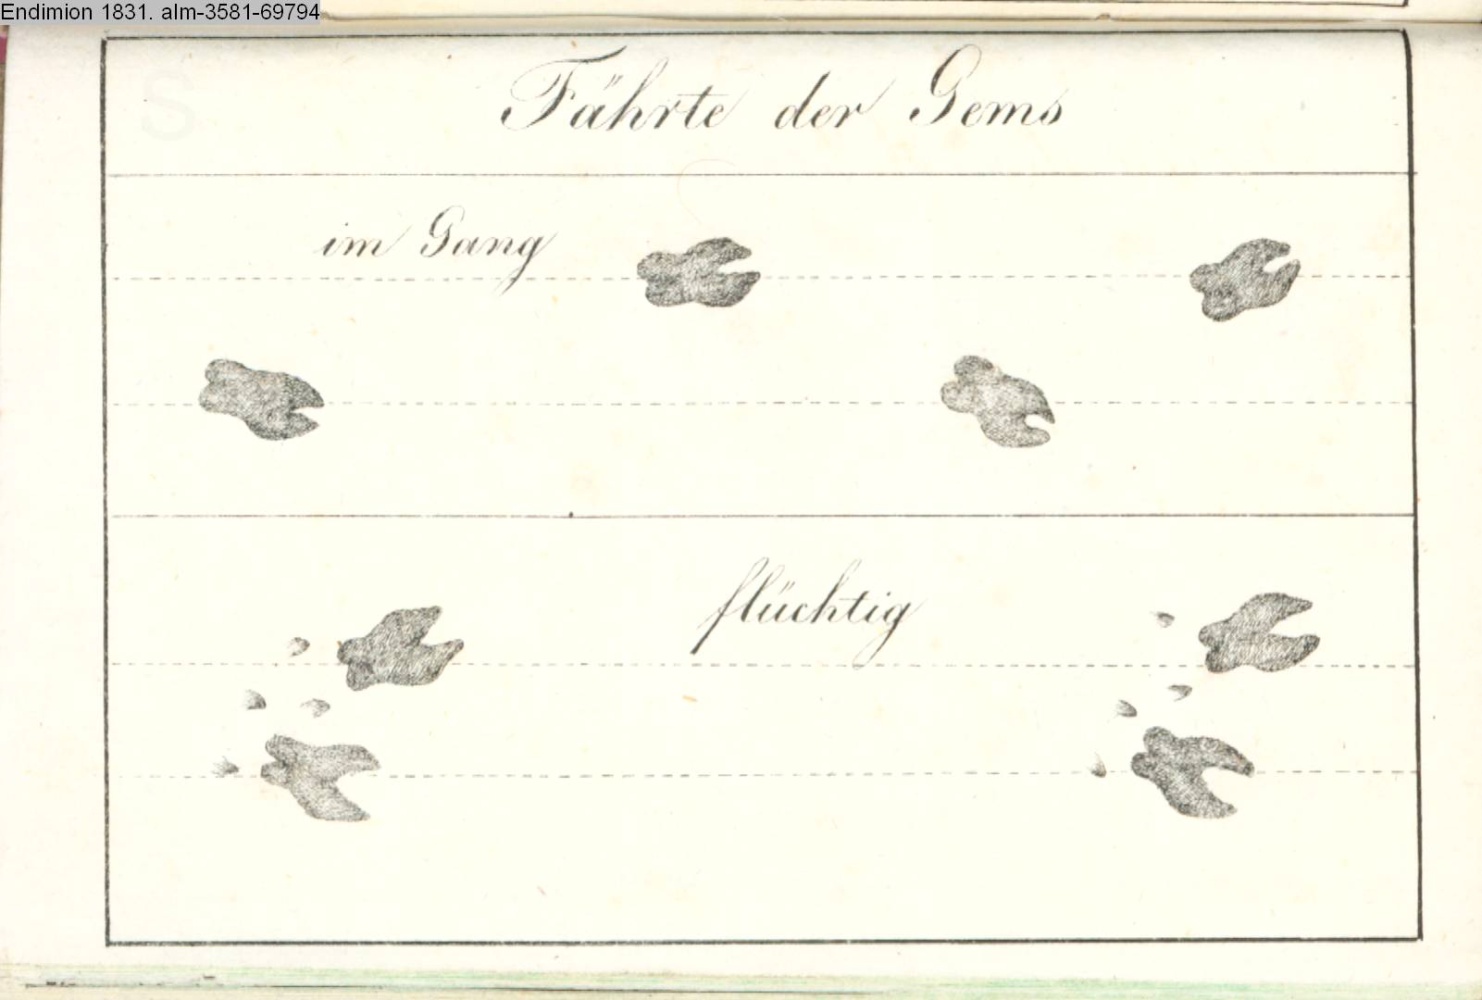 Endimion 1831. alm-3581-69794
Fährte der Gems
im Gang
flüchtig